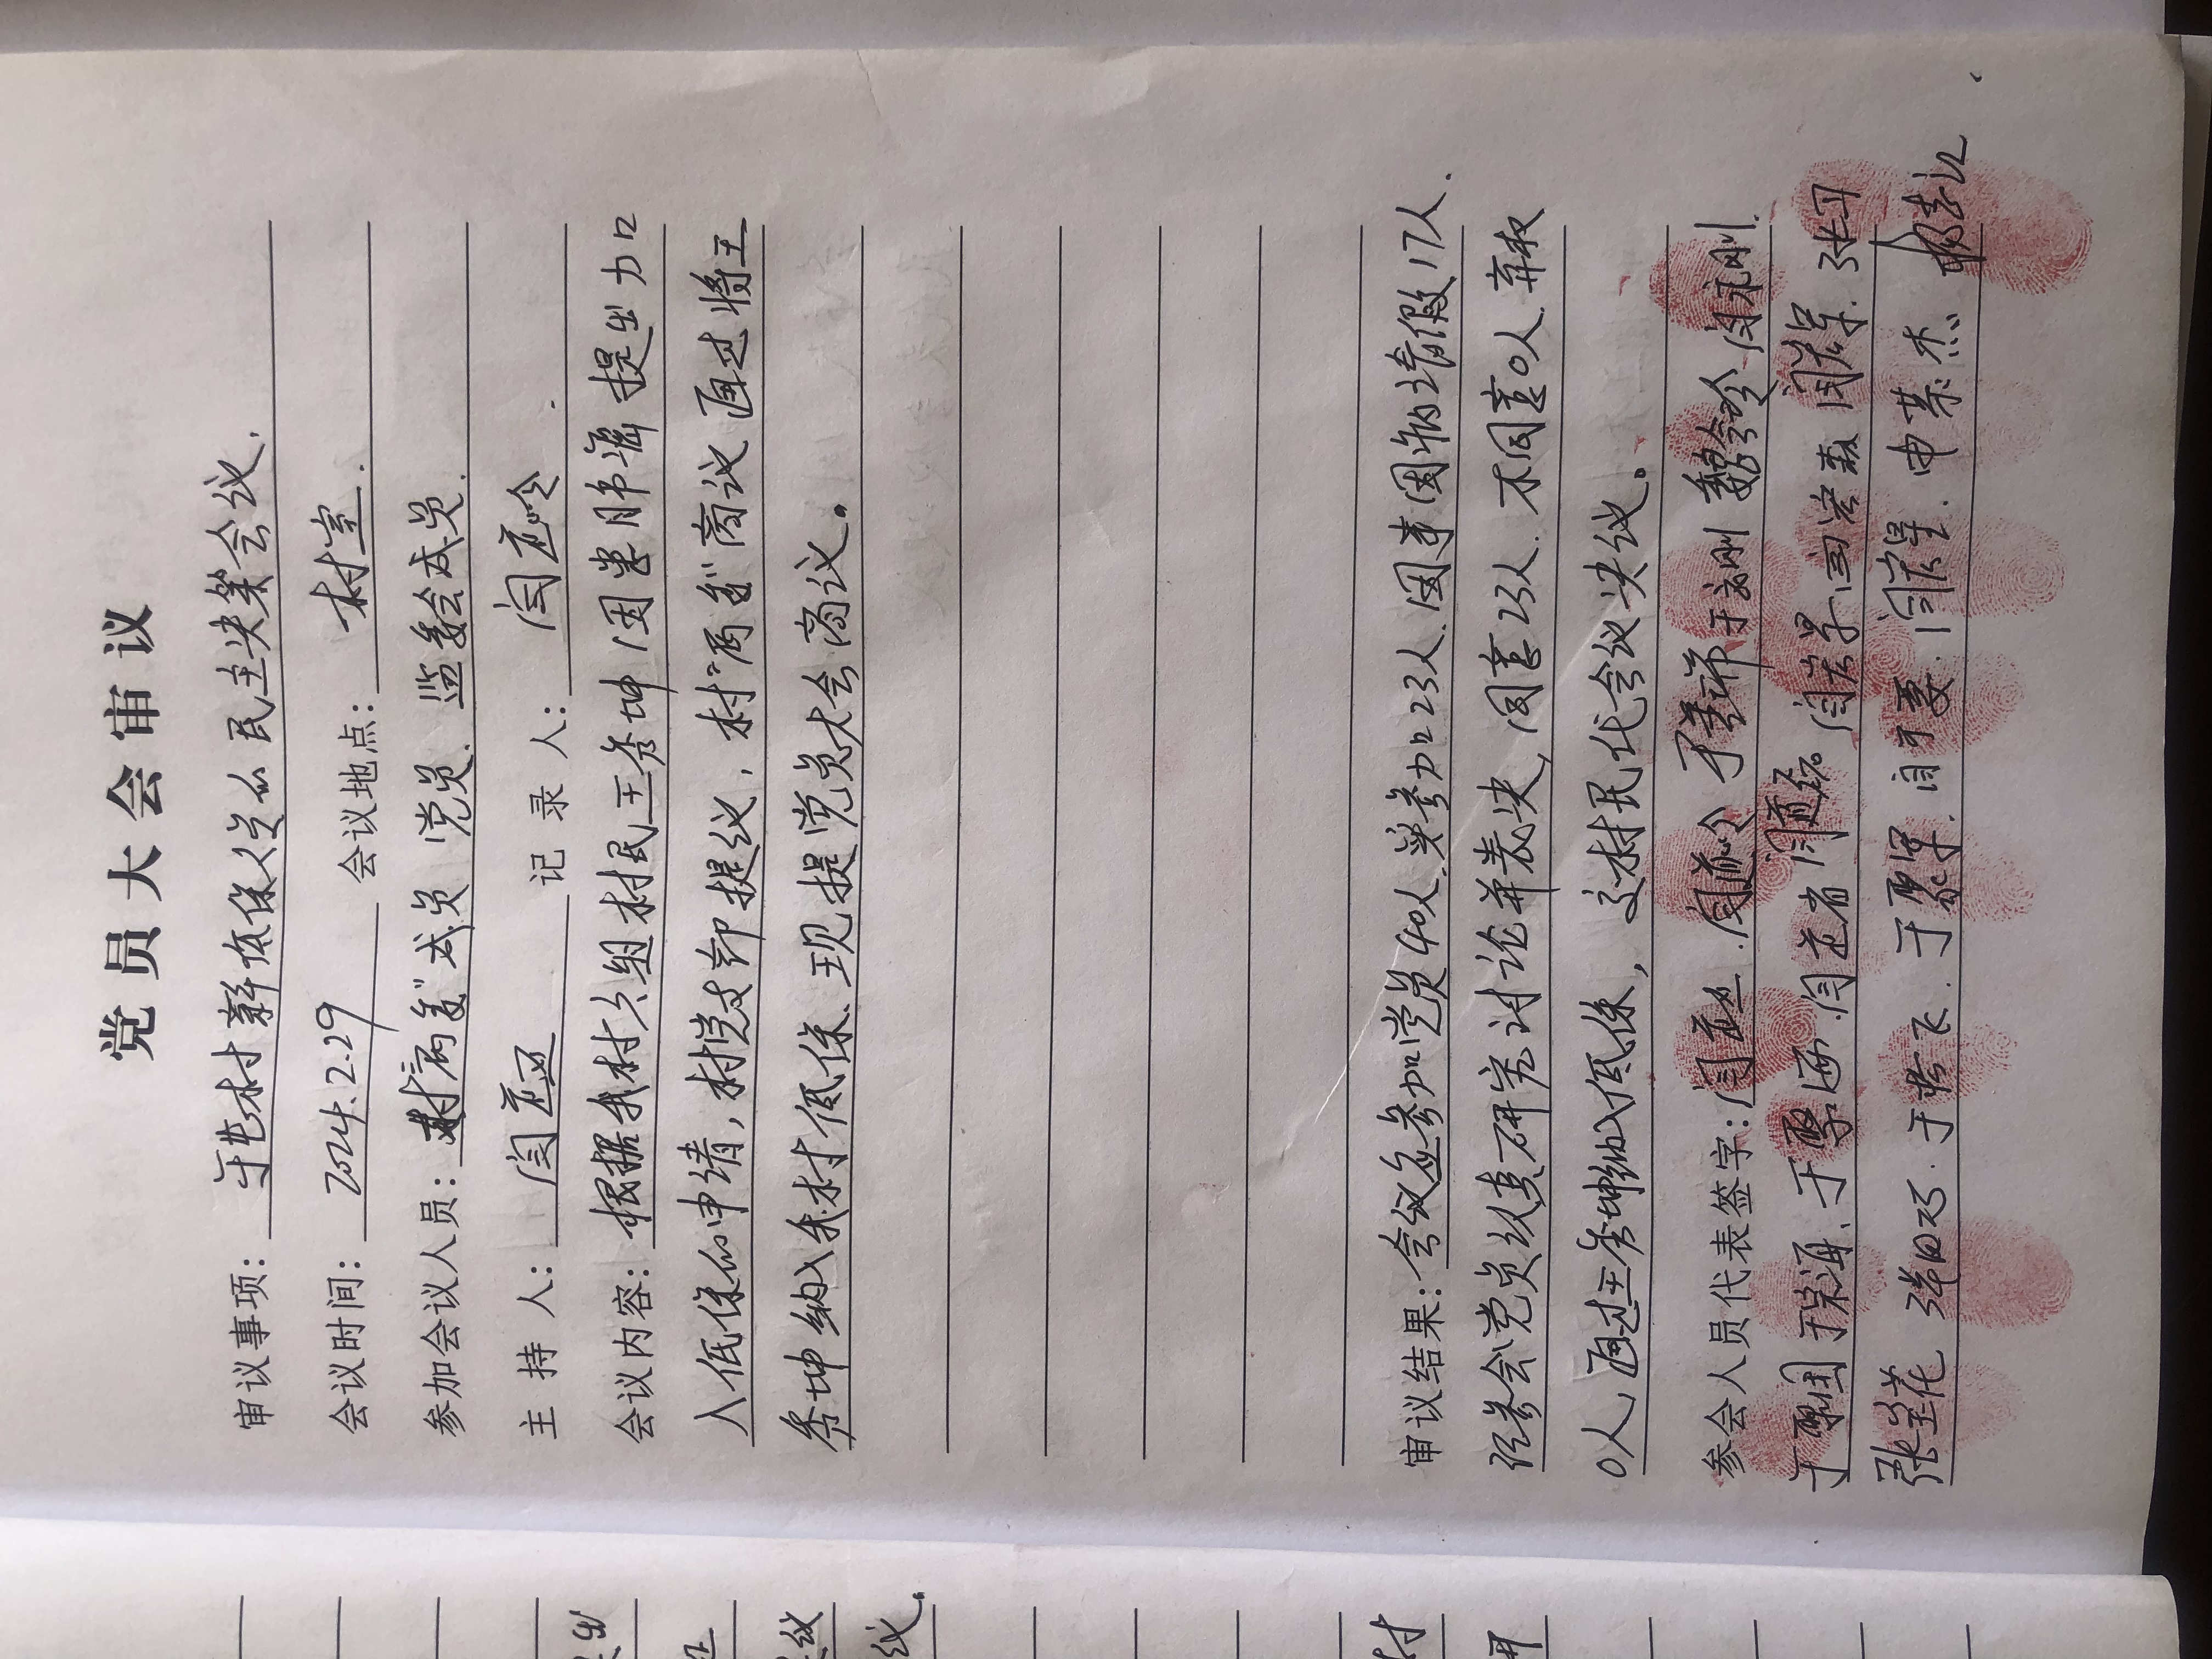 党员大会审议
审议事项: 于屯村新低保人员的民主决策会议.
会议时间: 2024.2.29 会议地点: 村室.
参加会议人员: 村"两委"成员 党员. 监委会成员.
主持人: 闫 记录人: 闫道岭.
会议内容: 根据我村六组村民王秀坤因患肺癌提出加
入低保的申请,村党支部提议,村"两委"商议通过将王
秀坤纳入我村低保.现提党员大会商议。
审议结果: 会议应参加党员40人.实参加23人.因事因病请假17人.
经参会党员认真研究讨论并表决,同意23人.不同意0人.弃权
0人,通过王秀坤纳入低保,交村民代会议决议。
参会人员代表签字: 闫 . 闫道岭 于 于 刚 魏 玲 闫永刚.
于聚国 于宗海. 于聚海. 闫道省 闫道磊 闫宏景 闫宏森 闫宏军. 张
张兰花 于 飞. 于聚军. 闫宏星. 申荣杰 杨志江
出
议
议。
村